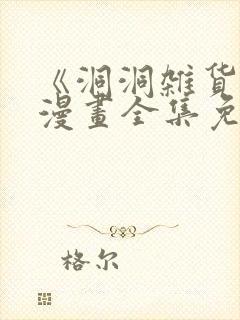 《洞洞雜货
漫畫全集免
格尔